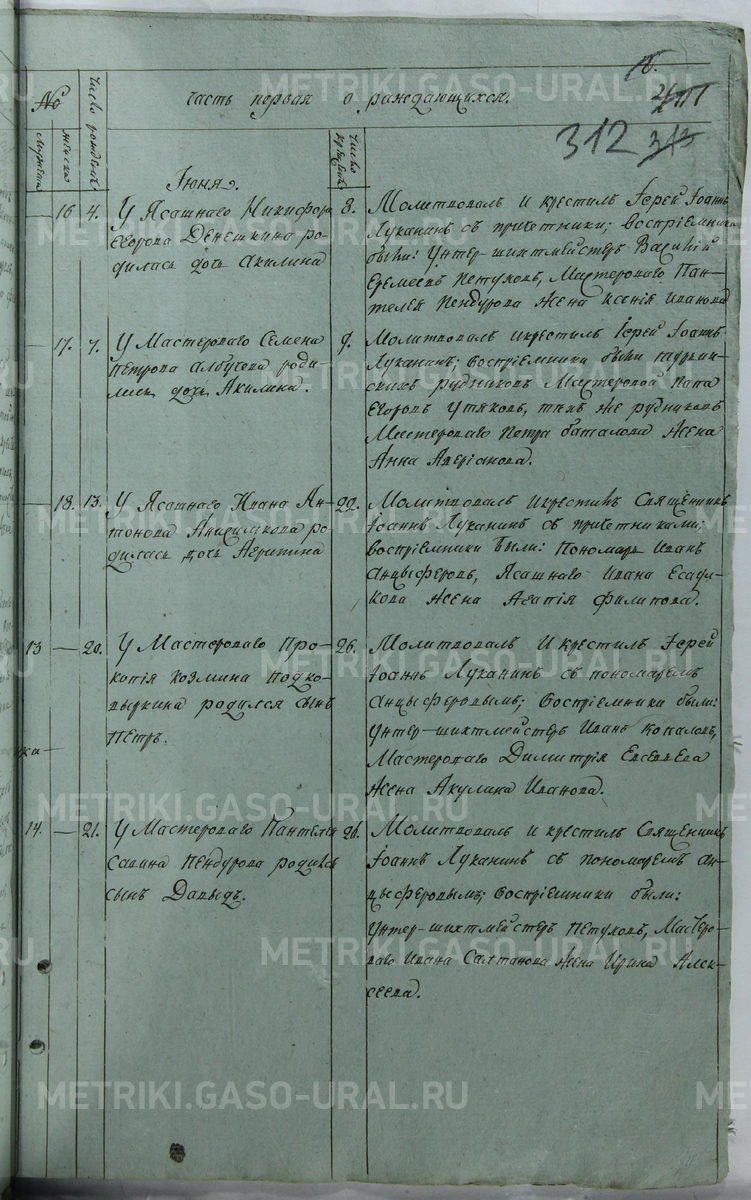 METRIKI.GASO-URAL.RU
№
число рожденiй
Часть первая о раждающихся.
312
мужеска
женска
число крещенiй
Iюня.
16
4.
У Ясашнаго Никифора
Егорова Денешкина ро-
дилась дочь Акилина
8.
Молитвовалъ и крестилъ Iерей Iоаннъ
Луканинъ съ причетники; Воспрiемники
были: Унтер-шихтмейстеръ Василiй
Еремеевъ Петуховъ, Мастероваго Пан-
телея Пендурова Жена Ксенiя Иванова
17.
7.
У Мастероваго Семена
Петрова роди-
лась дочь Акилина.
9.
Молитвовалъ и крестилъ Iерей Iоаннъ
Луканинъ; Воспрiемники были
рудниковъ Мастеровой
Егоровъ Утяковъ, тѣхъ же рудниковъ
Мастероваго Петра Баталова Жена
Анна Аверiанова.
18.
13.
У Ясашнаго Ивана Ан-
тонова Анисимкова ро-
дилась дочь Агрипина
22.
Молитвовалъ и крестилъ Священникъ
Iоаннъ Луканинъ съ причетниками;
Воспрiемники Были: Пономарь Иванъ
Анцыферовъ, Ясашнаго Ивана Есаул-
кова Жена Агапiя Филипова.
13
20.
У Мастероваго Про-
копiя Козмина Подко-
выркина родился сынъ
Петръ.
26.
Молитвовалъ и крестилъ Iерей
Iоаннъ Луканинъ съ пономаремъ
Анцыферовымъ; Воспрiемники были:
Унтер-шихтмейстеръ Иванъ Копаловъ,
Мастероваго Димитрiя Евсевiева
Жена Акулина Иванова.
14.
21.
У Мастероваго Пантелея
Савина Пендурова родился
сынъ Давыдъ.
26.
Молитвовалъ и крестилъ Священникъ
Iоаннъ Луканинъ съ пономаремъ Ан-
цыферовымъ; Воспрiемники были:
Унтер-шихтмейстеръ Петуховъ, Мастеро-
ваго Ивана Салтанова Жена Ирина Алек-
сеева.